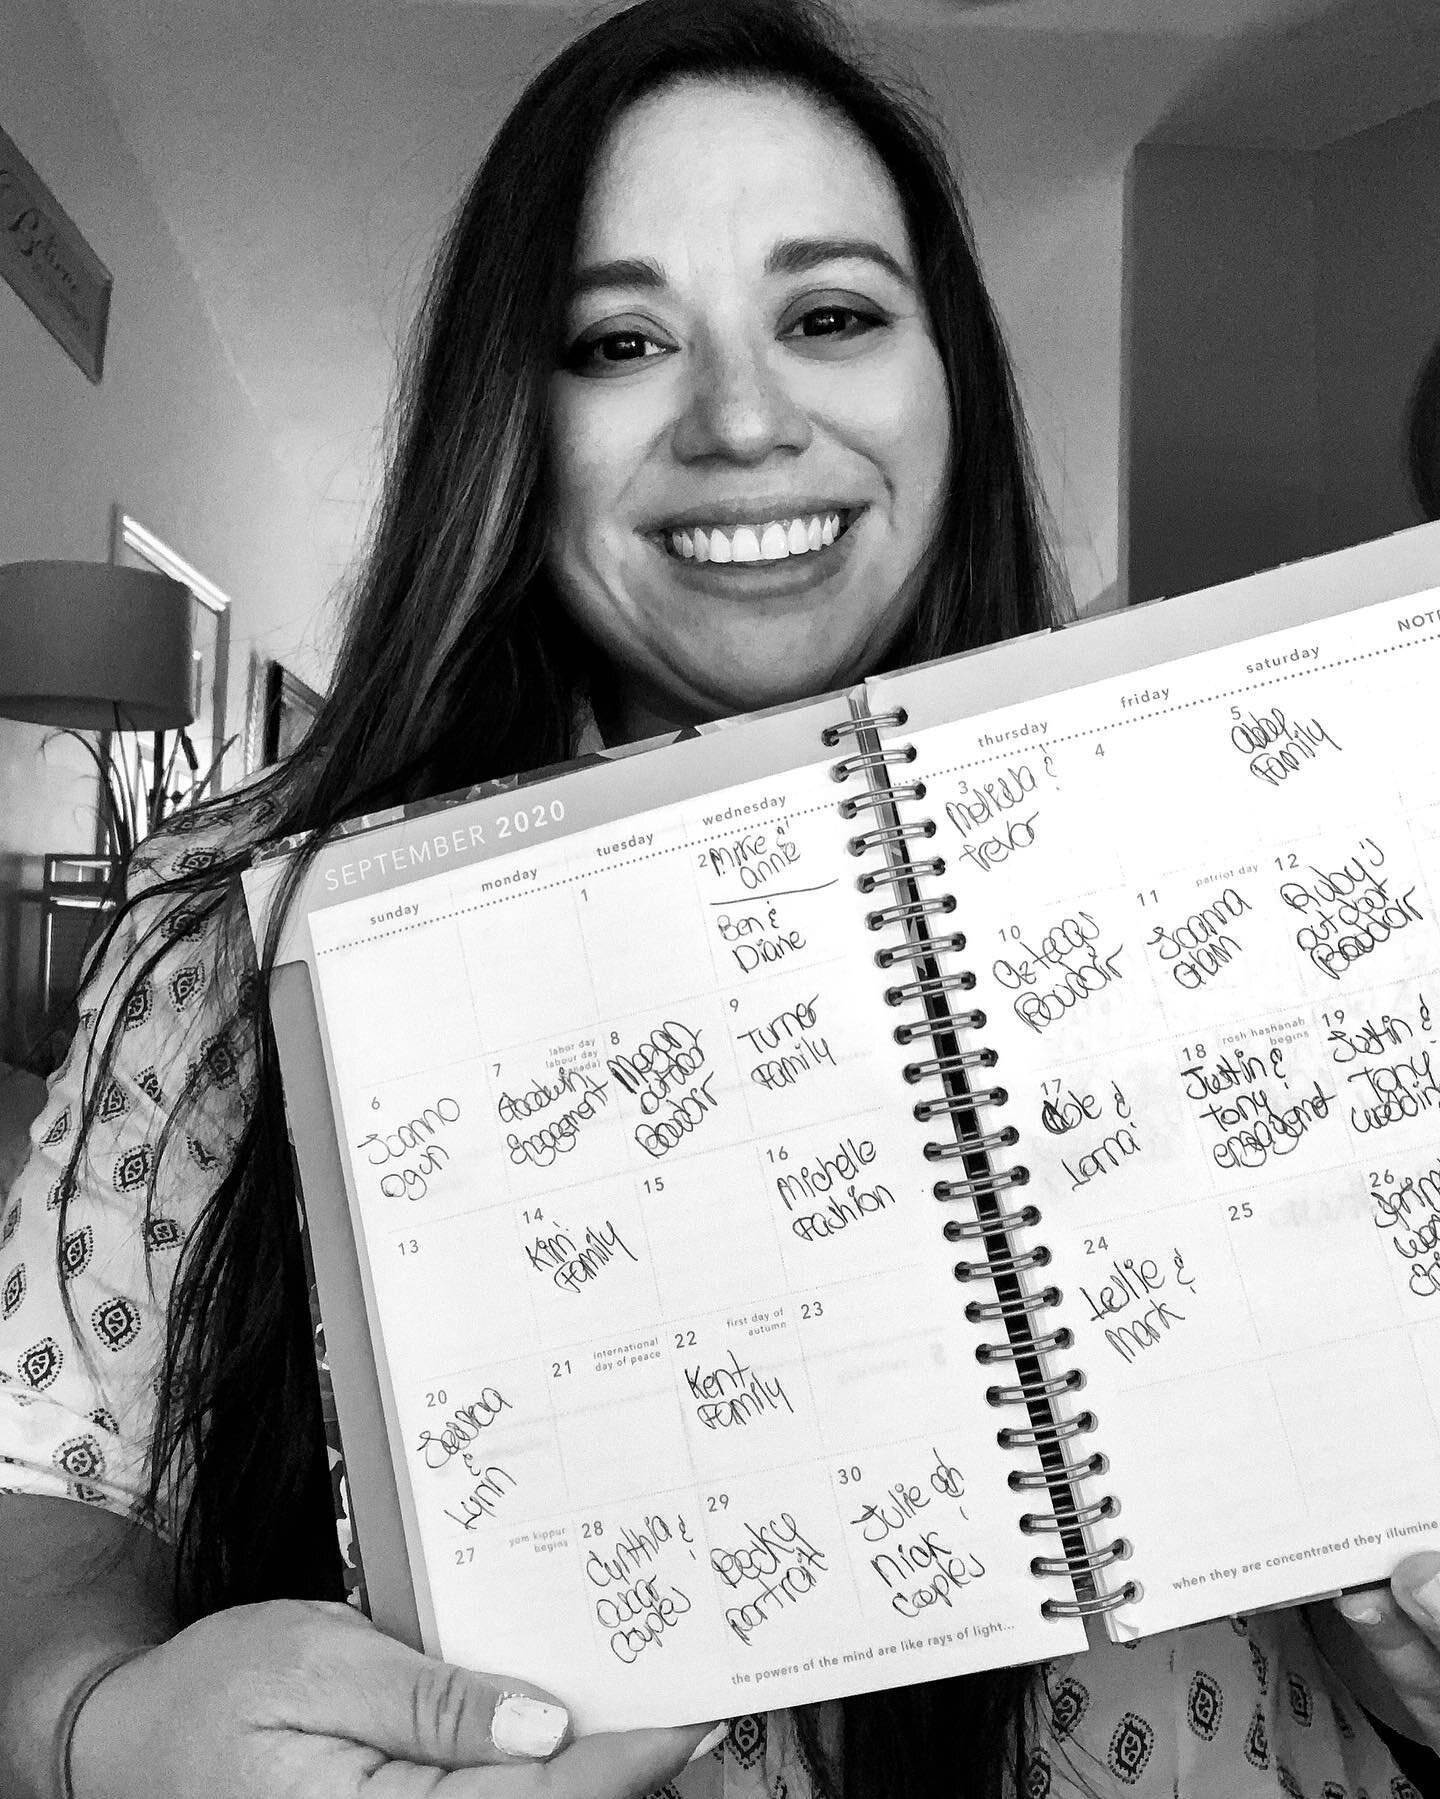 SEPTEMBER 2020
sunday
monday
tuesday
wednesday
thursday
friday
saturday
NOTE
1
2
Mike &
annie
Ben &
Diane
3
Melissa &
trevor
4
5
abby
Family
6
Joanna
ogun
7
labor day
labour day
(canada)
Goodwin
Engagement
8
Megan
outdoor
Boudoir
9
Turner
Family
10
Boudoir
11
patriot day
Joanna
Glam
12
Ruby's
outdoor
Boudoir
13
14
Kim
Family
15
16
Michelle
Fashion
17
Cole &
Lorna
18
rosh hashanah
begins
Justin &
Tony
engagement
19
Justin &
Tony
wedding
20
Jessica
&
Lynn
21
international
day of peace
22
first day of
autumn
Kent
Family
23
24
Leslie &
mark
25
26
27
yom kippur
begins
28
Cynthia &
oscar
couples
29
Becky
portrait
30
Julie &
nick
couples
the powers of the mind are like rays of light...
when they are concentrated they illumine